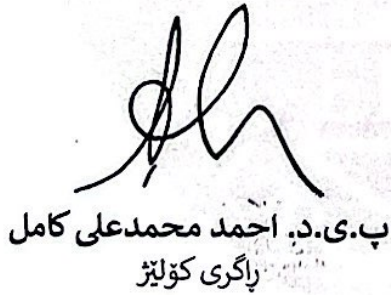 پ.ی.د. احمد محمدعلی کامل
ڕاگری کۆلێژ